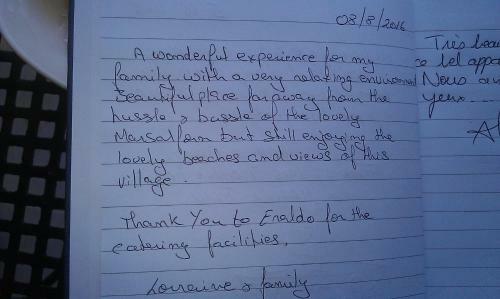 03/8/2016
A wonderful experience for my
family with a very relaxing environment
beautiful place faraway from the
hussle & bussle of the lovely
Marsalforn but still enjoying the
lovely beaches and views of this
village.
Thank You to Eraldo for the
catering facilities,
Lorraine & family
Très beau
ce bel appa
Nous av
yeux